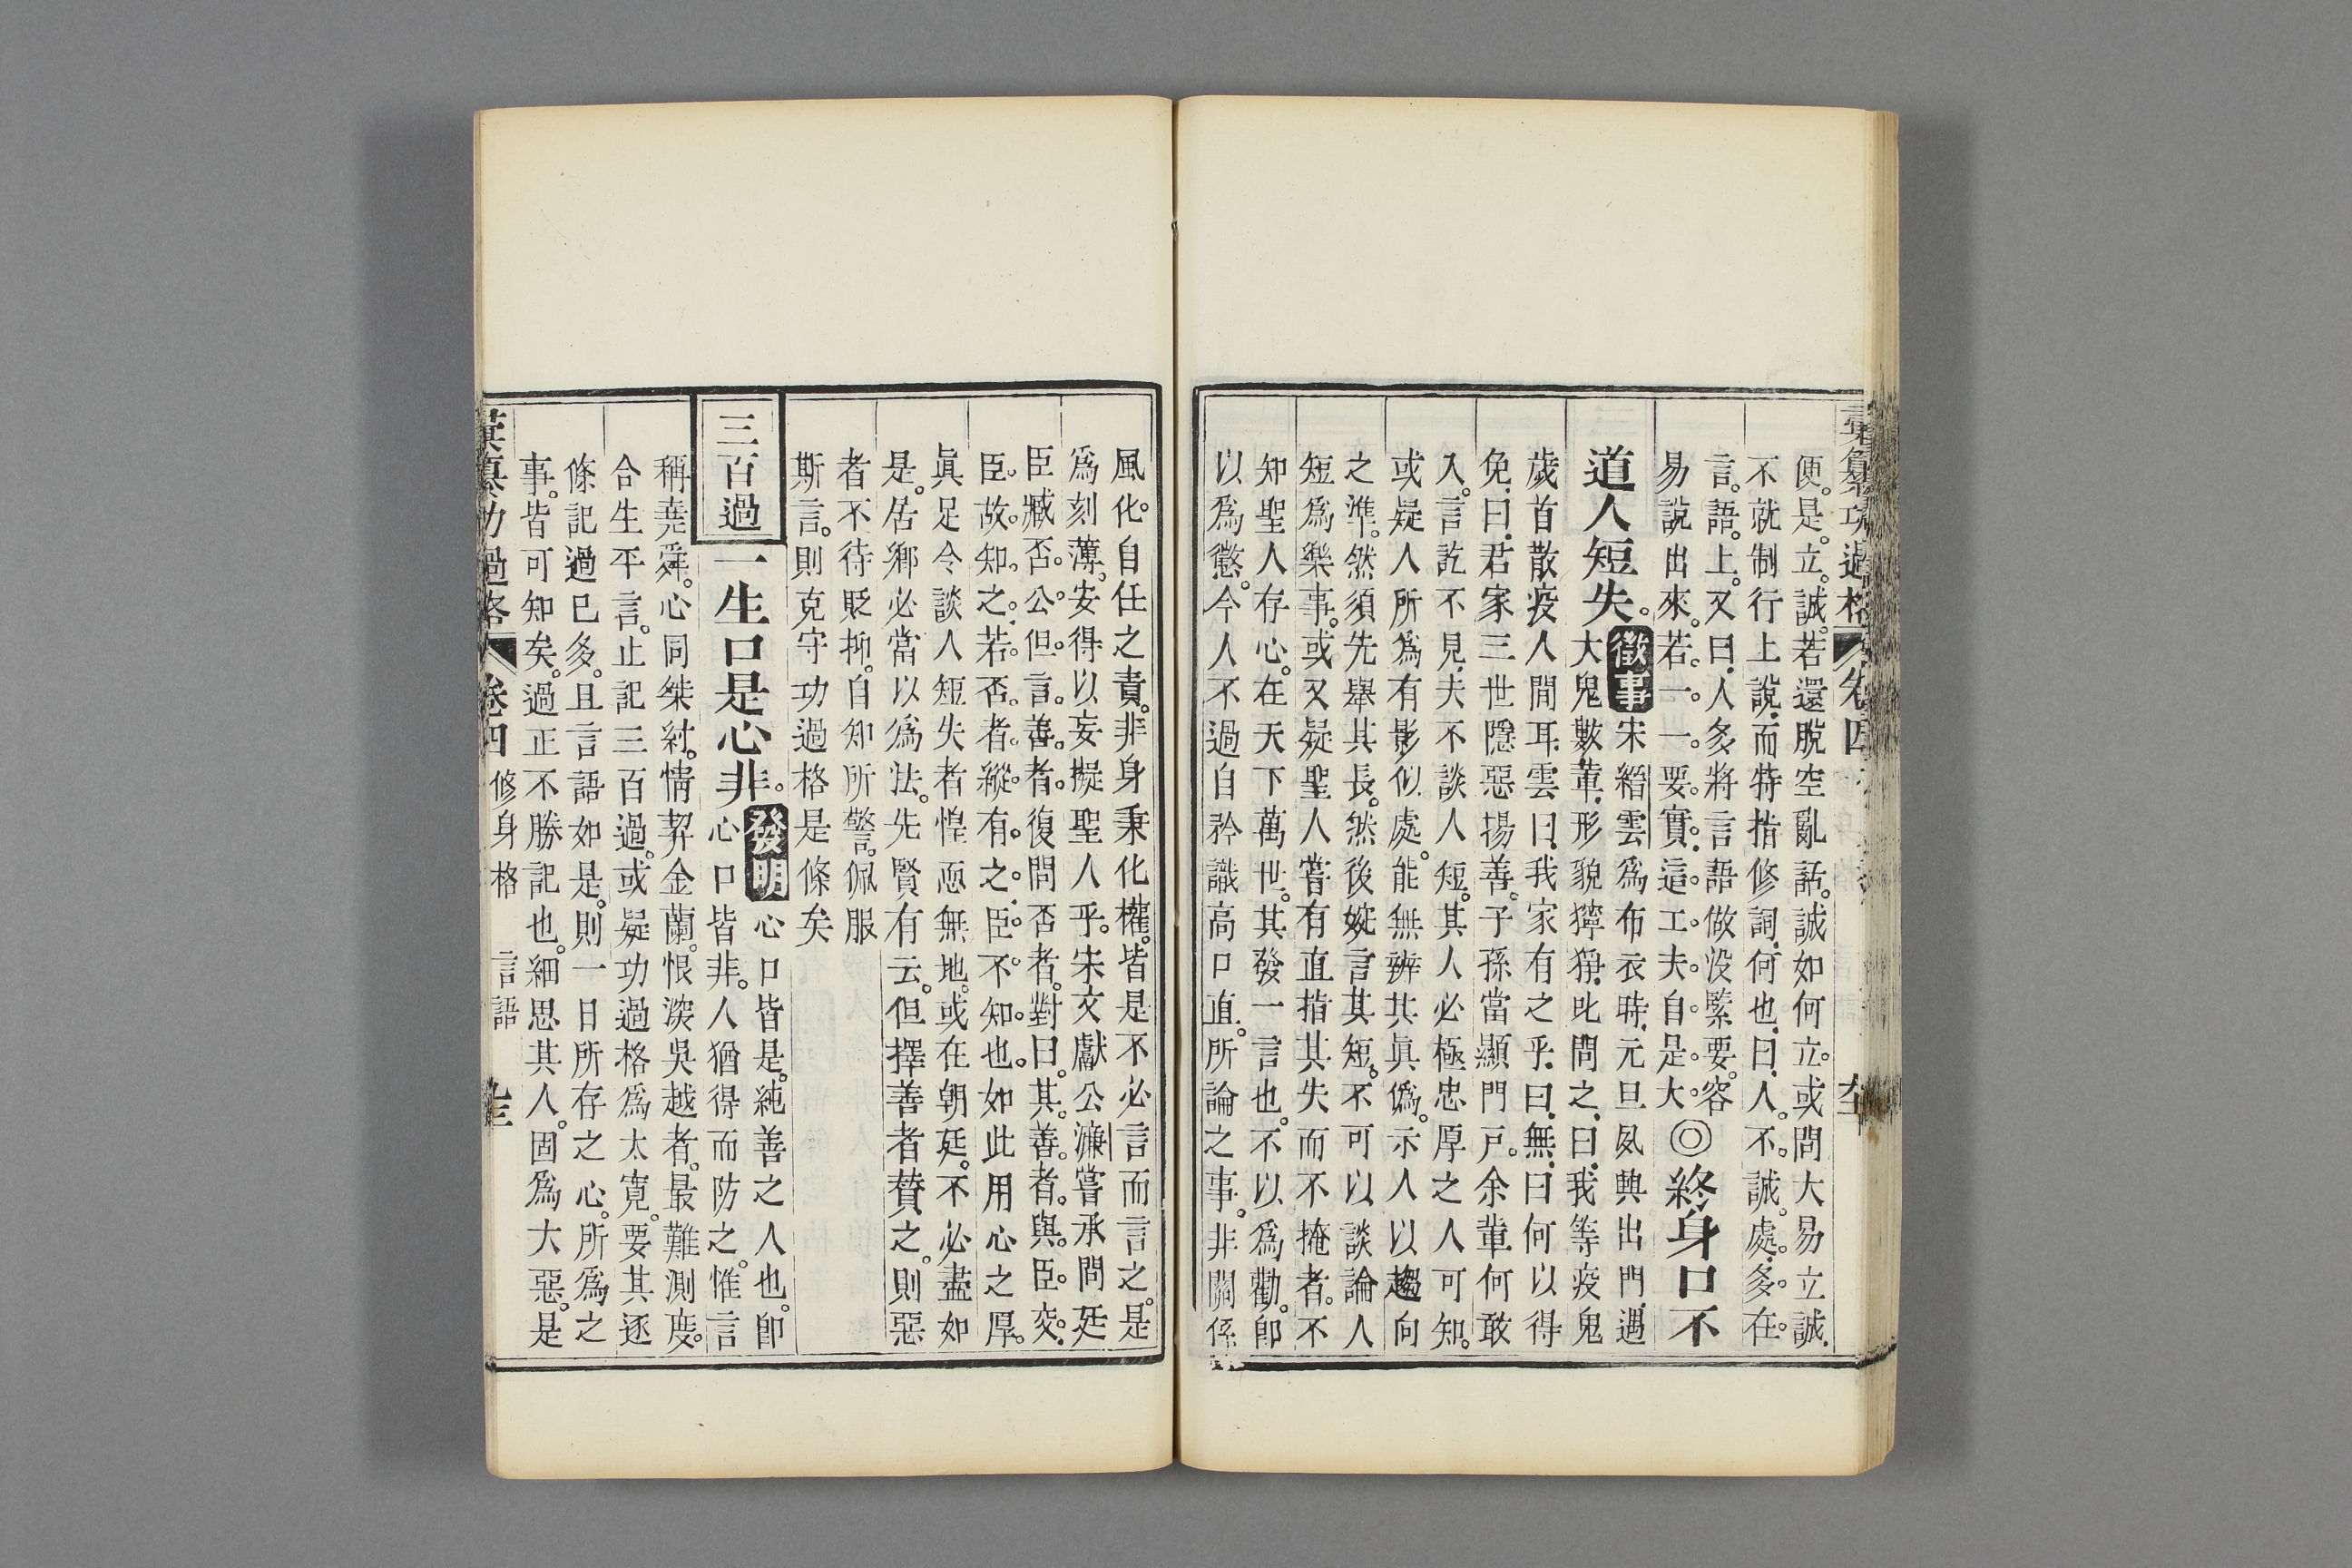 彙纂功過格 卷四
便是立誠若還脫空亂話誠如何立或問大易立誠
不就制行上說而特指修詞何也曰人不誠處多在
言語上又曰人多將言語做沒緊要容
易說出來若一一要實這工夫自是大◎終身口不
道人短失。徵事宋縉雲爲布衣時元旦夙興出門遇
大鬼數輩形貌獰猙叱問之曰我等疫鬼
歲首散疫人間耳雲曰我家有之乎曰無曰何以得
免曰君家三世隱惡揚善子孫當顯門戸余輩何敢
入言訖不見夫不談人短其人必極忠厚之人可知
或疑人所爲有影似處能無辨其眞僞示人以趨向
之準然須先舉其長然後婉言其短不可以談論人
短爲樂事或又疑聖人嘗有直指其失而不掩者不
知聖人存心在天下萬世其發一言也不以爲勸卽
以爲懲今人不過自矜識高口直所論之事非關係
風化自任之責非身秉化權皆是不必言而言之是
爲刻薄安得以妄擬聖人乎宋文獻公濂嘗承問廷
臣臧否公但言善者復問否者對曰其善者與臣交
臣故知之若否者縱有之臣不知也如此用心之厚
眞足令談人短失者惶恧無地或在朝廷不必盡如
是居鄉必當以爲法先賢有云但擇善者贊之則惡
者不待貶抑自知所警佩服
斯言則克守功過格是條矣
三百過 一生口是心非。發明心口皆是純善之人也卽
心口皆非人猶得而防之惟言
稱堯舜心同桀紂情契金蘭恨深吳越者最難測度
合生平言止記三百過或疑功過格爲太寬要其逐
條記過已多且言語如是則一日所存之心所爲之
事皆可知矣過正不勝記也細思其人固爲大惡是
彙纂功過格 卷四 修身格 言語